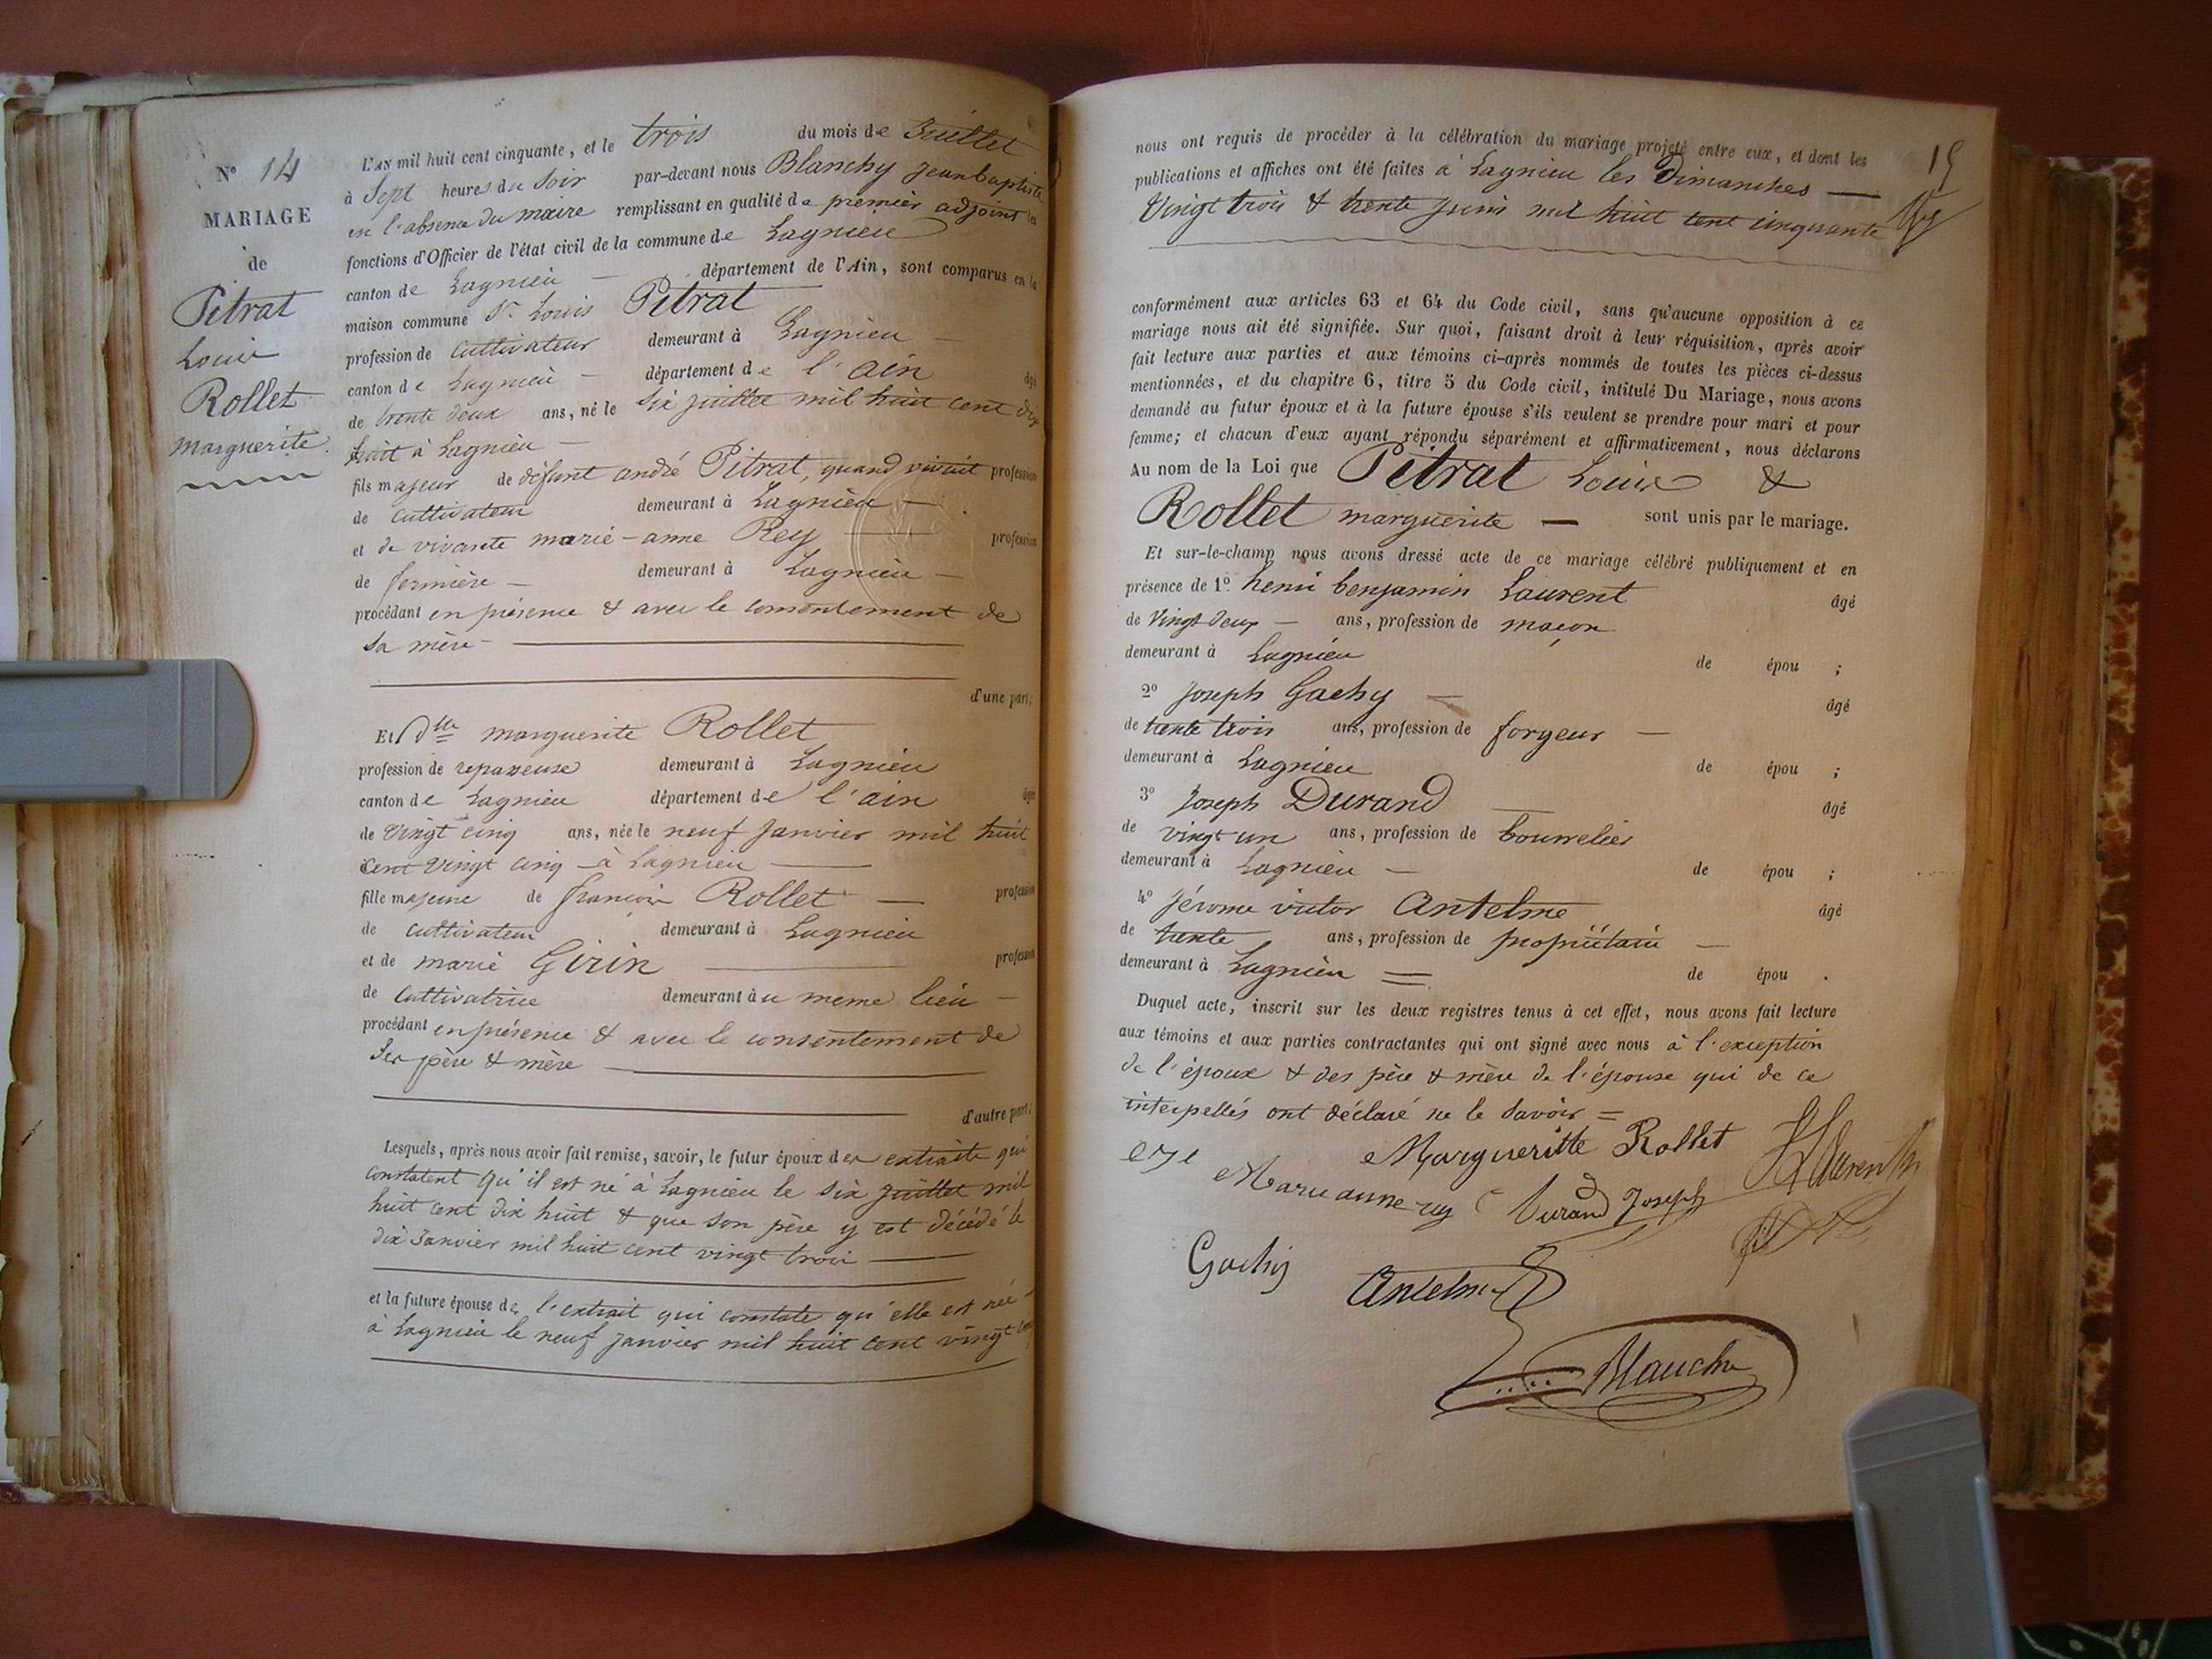 N° 14
MARIAGE
de
Pitrat
Louis
Rollet
marguerite.
L'AN mil huit cent cinquante, et le trois du mois de Juillet
à Sept heures du Soir par-devant nous Blanchy Jean baptiste
en l'absence du maire remplissant en qualité de premier adjoint les
fonctions d'Officier de l'état civil de la commune de Lagnieu
canton de Lagnieu — département de l'Ain, sont comparus en la
maison commune Sr. Louis Pitrat
profession de cultivateur demeurant à Lagnieu —
canton de Lagnieu — département de l'ain âgé
de trente deux ans, né le Six juillet mil huit cent dix
huit à Lagnieu —
fils majeur de défunt andré Pitrat, quand vivait profession
de cultivateur demeurant à Lagnieu —
et de vivante marie-anne Rey — profession
de fermière — demeurant à Lagnieu —
procédant en présence & avec le consentement de
sa mère —
d'une part;
Et Dlle marguerite Rollet
profession de repasseuse demeurant à Lagnieu
canton de Lagnieu département de l'ain âgée
de vingt cinq ans, née le neuf Janvier mil huit
cent vingt cinq — à Lagnieu —
fille majeure de françois Rollet — profession
de cultivateur demeurant à Lagnieu
et de marie Girin — profession
de cultivatrice demeurant au meme lieu —
procédant en présence & avec le consentement de
ses père & mère —
d'autre part;
Lesquels, après nous avoir fait remise, savoir, le futur époux des extraits qui
constatent qu'il est né à Lagnieu le six juillet mil
huit cent dix huit & que son père y est décédé le
dix Janvier mil huit cent vingt trois —
et la future épouse de l'extrait qui constate qu'elle est née
à Lagnieu le neuf Janvier mil huit cent vingt cinq
15
nous ont requis de procéder à la célébration du mariage projeté entre eux, et dont les
publications et affiches ont été faites à Lagnieu les Dimanches —
Vingt trois & trente Juin mil huit cent cinquante
conformément aux articles 63 et 64 du Code civil, sans qu'aucune opposition à ce
mariage nous ait été signifiée. Sur quoi, faisant droit à leur réquisition, après avoir
fait lecture aux parties et aux témoins ci-après nommés de toutes les pièces ci-dessus
mentionnées, et du chapitre 6, titre 5 du Code civil, intitulé Du Mariage, nous avons
demandé au futur époux et à la future épouse s'ils veulent se prendre pour mari et pour
femme; et chacun d'eux ayant répondu séparément et affirmativement, nous déclarons
Au nom de la Loi que Pitrat Louis &
Rollet marguerite — sont unis par le mariage.
Et sur-le-champ nous avons dressé acte de ce mariage célébré publiquement et en
présence de 1° henri benjamin Laurent âgé
de Vingt deux — ans, profession de maçon
demeurant à Lagnieu de épou ;
2° Joseph Gachy — âgé
de trente trois ans, profession de forgeur —
demeurant à Lagnieu de épou ;
3° Joseph Durand — âgé
de vingt un ans, profession de bourrelier
demeurant à Lagnieu — de épou ;
4° Jérome victor Antelme âgé
de trente ans, profession de propriétaire —
demeurant à Lagnieu = de épou .
Duquel acte, inscrit sur les deux registres tenus à cet effet, nous avons fait lecture
aux témoins et aux parties contractantes qui ont signé avec nous à l'exception
de l'époux & des père & mère de l'épouse qui de ce
interpellés ont déclaré ne le savoir =
Margueritte Rollet
Laurent
Marie anne rey Durand Joseph
Gachy
Antelme
Blanchy